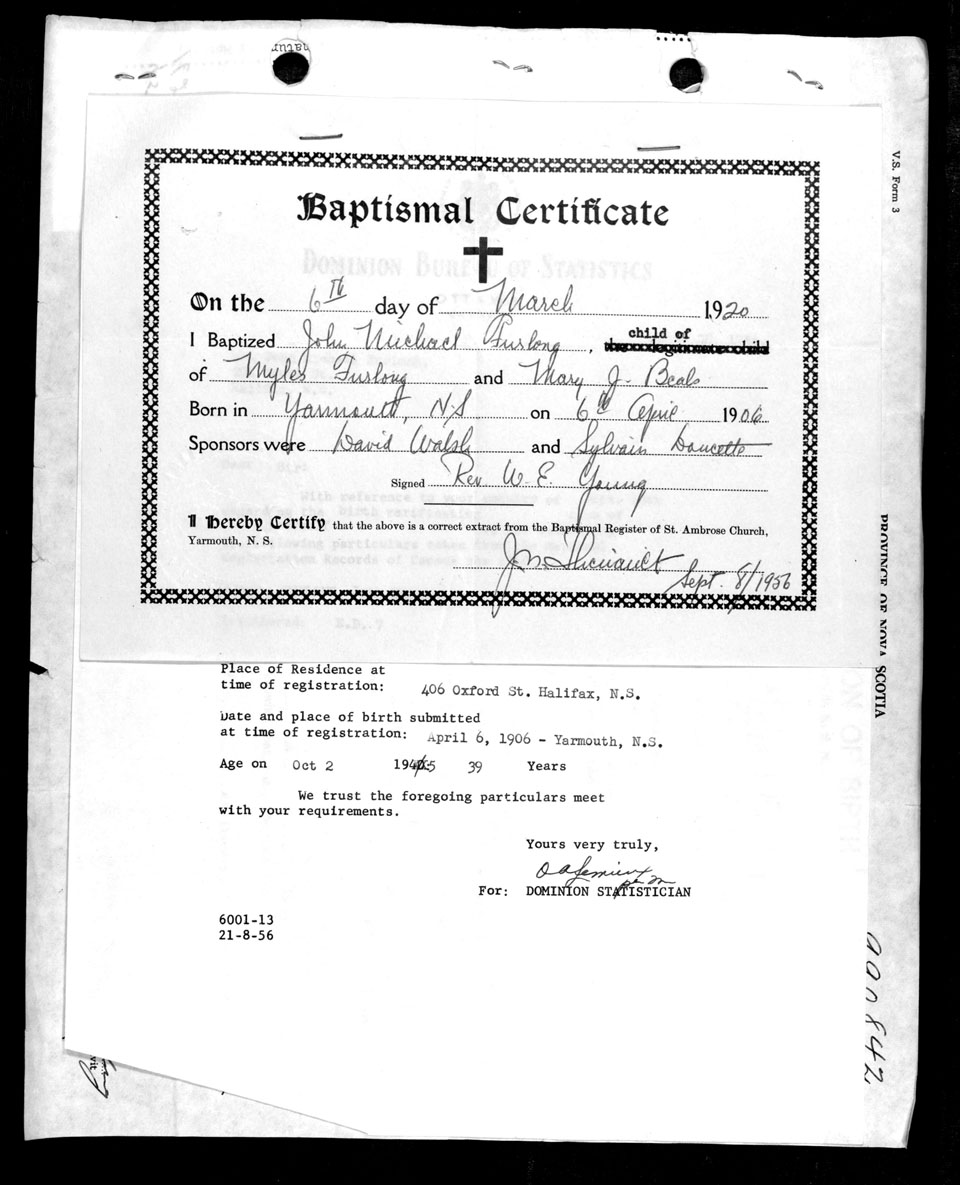 V.S. Form 3
Baptismal Certificate
DOMINION BUREAU OF STATISTICS
On the 6th day of March 1920
I Baptized John Michael Furlong, child of
of Myles Furlong and Mary J. Beals
Born in Yarmouth, N.S on 6th April 1906
Sponsors were David Walsh and Sylvain Doucette
Signed Rev W. E. Young
I Hereby Certify that the above is a correct extract from the Baptismal Register of St. Ambrose Church,
Yarmouth, N. S.
Sept. 8/1956
PROVINCE OF NOVA SCOTIA
Place of Residence at
time of registration: 406 Oxford St. Halifax, N.S.
Date and place of birth submitted
at time of registration: April 6, 1906 - Yarmouth, N.S.
Age on Oct 2 1945 39 Years
We trust the foregoing particulars meet
with your requirements.
Yours very truly,
For: DOMINION STATISTICIAN
6001-13
21-8-56